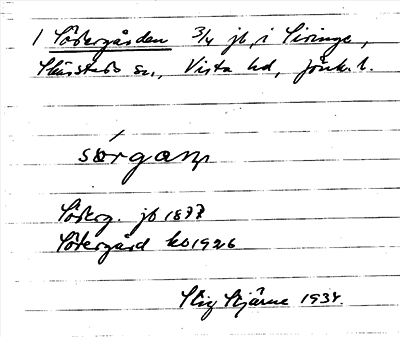 1 Södergården 3/4 jb, i Siringe,
Skärstads sn., Vista hd, Jönk. l.
sǿrgaɳ
Söderg. jb 1877
Södergård kb 1926
Stig Stjärne 1934.